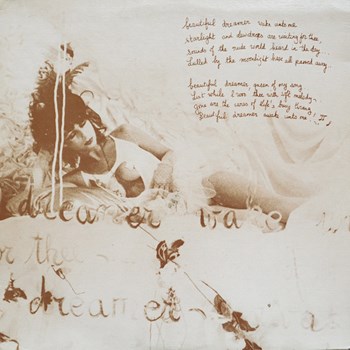 beautiful dreamer wake unto me
starlight and dewdrops are waiting for thee,
sounds of the rude world heard in the day
Lulled by the moonlight have all passed away.
beautiful dreamer, queen of my song
List while I woo thee with soft melody,
Gone are the cares of life's busy throng
Beautiful dreamer awake unto me!
dreamer wake
for thee
dreamer